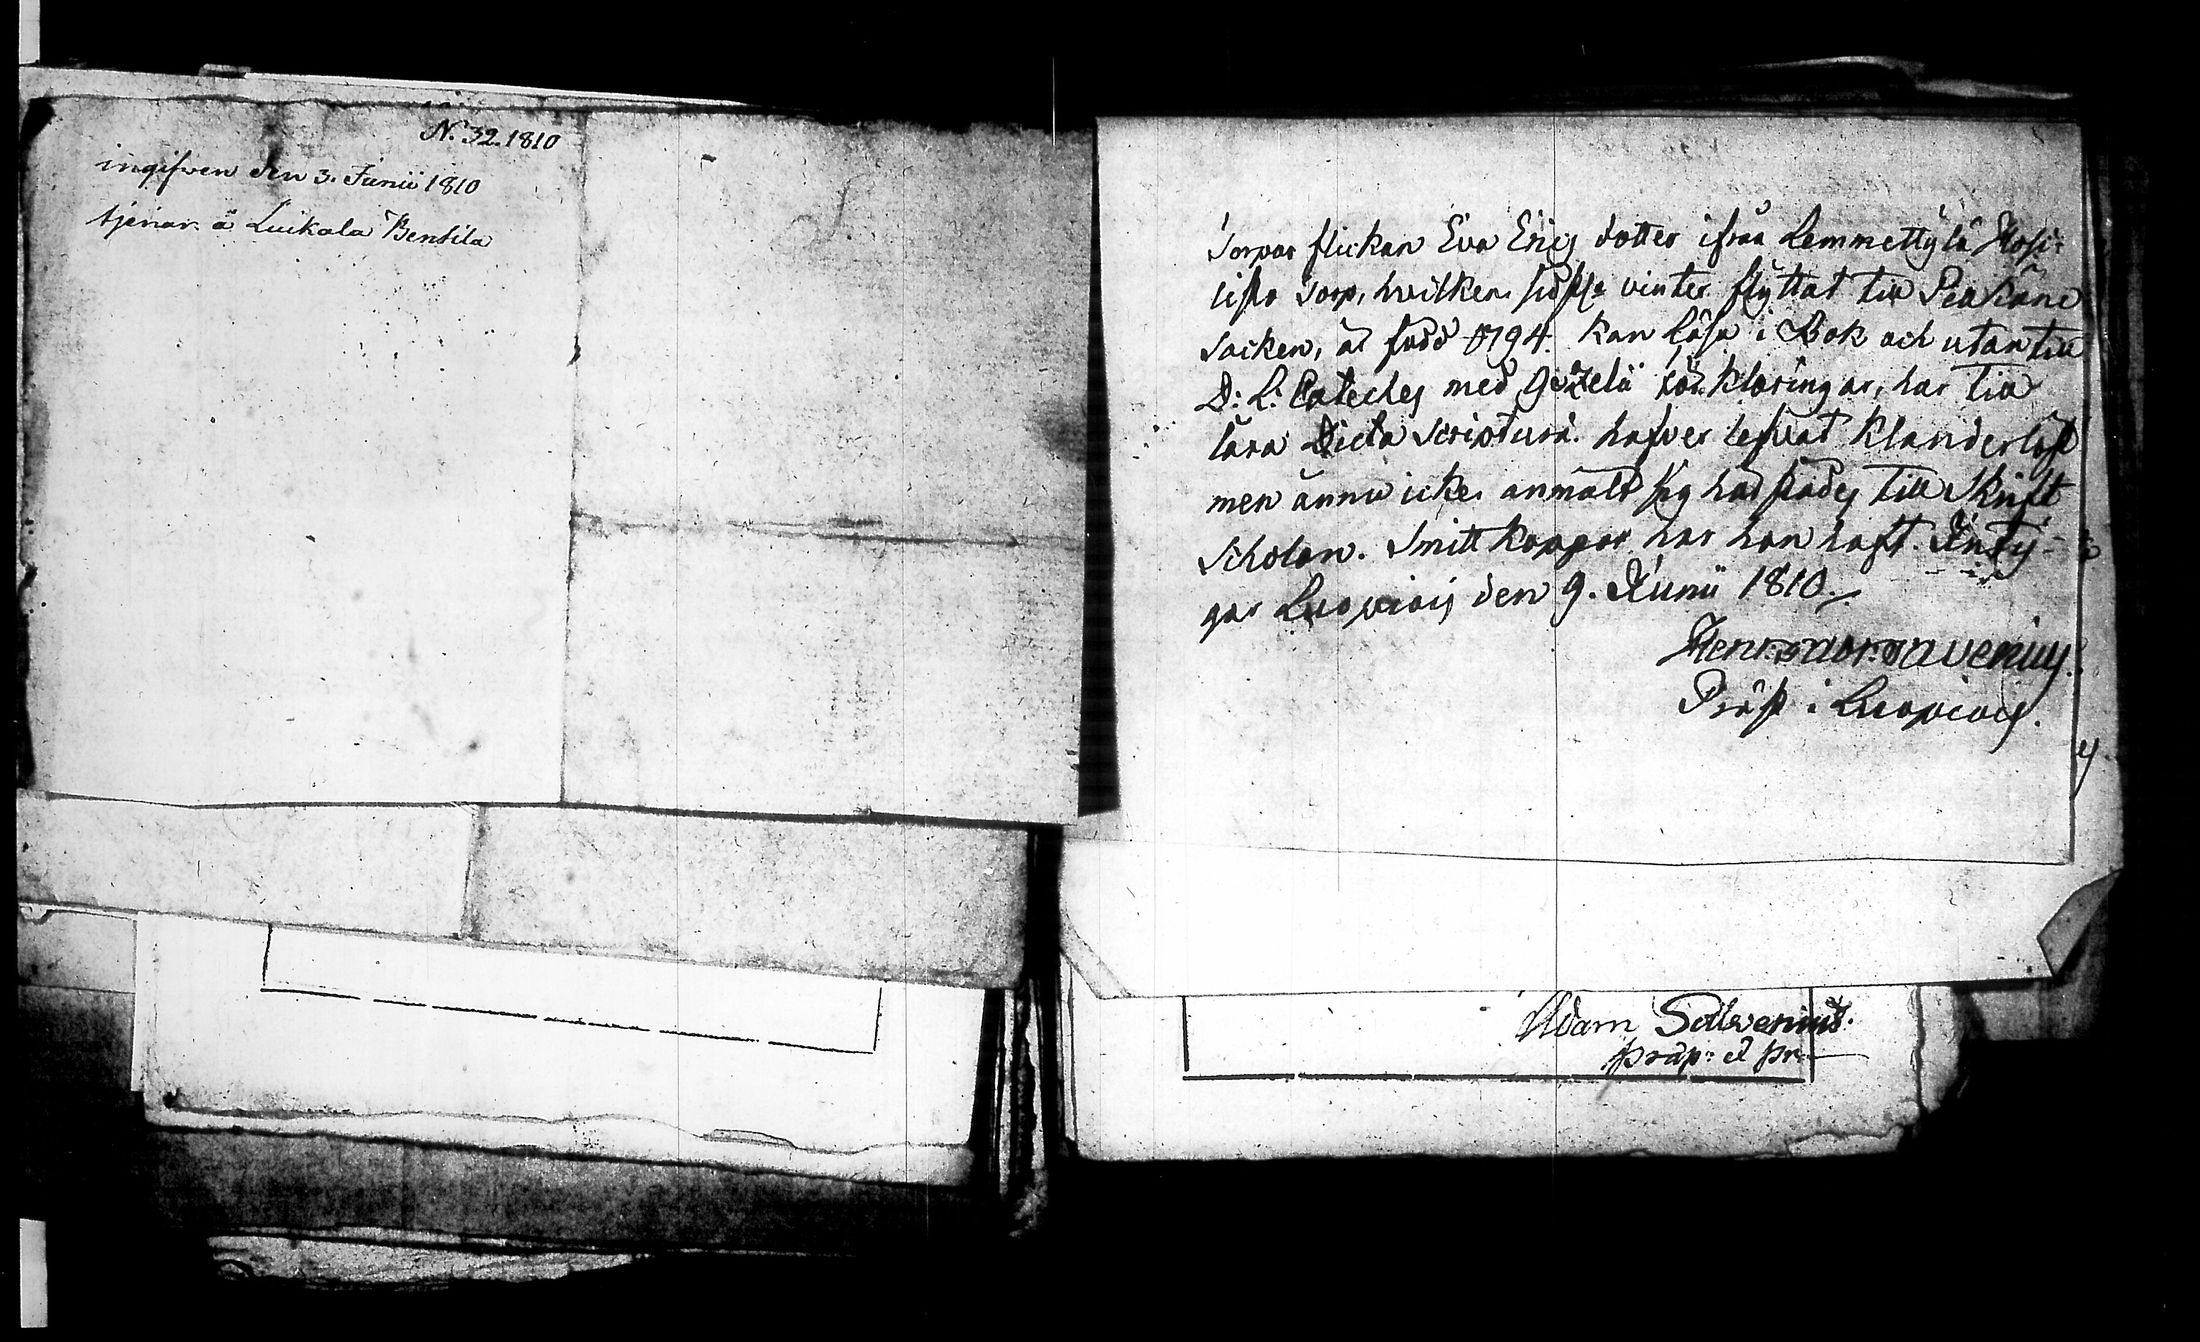 N. 32. 1810
ingifven den 3. Junii 1810
tjenar å Luikala Bentila
Torpar flickan Eva Erics dotter ifrån Lemmettylä
torp, hvilken sidste vinter flyttat till Pelkäne
Socken, är född 1794. kan läsa i Bok och utantill
D: L: Cateches med Gezelii förklaringar, har till
lära Dicta Scriptura. hafver lefvat klanderlöst
men ännu icke anmält sig hos till Skrift
Scholan. Smitt koppor har hon haft. Inty-
gar Luopiois den 9. Junii 1810.
Salvenius
i Luopiois.
Adam Salvenius.
præp: et